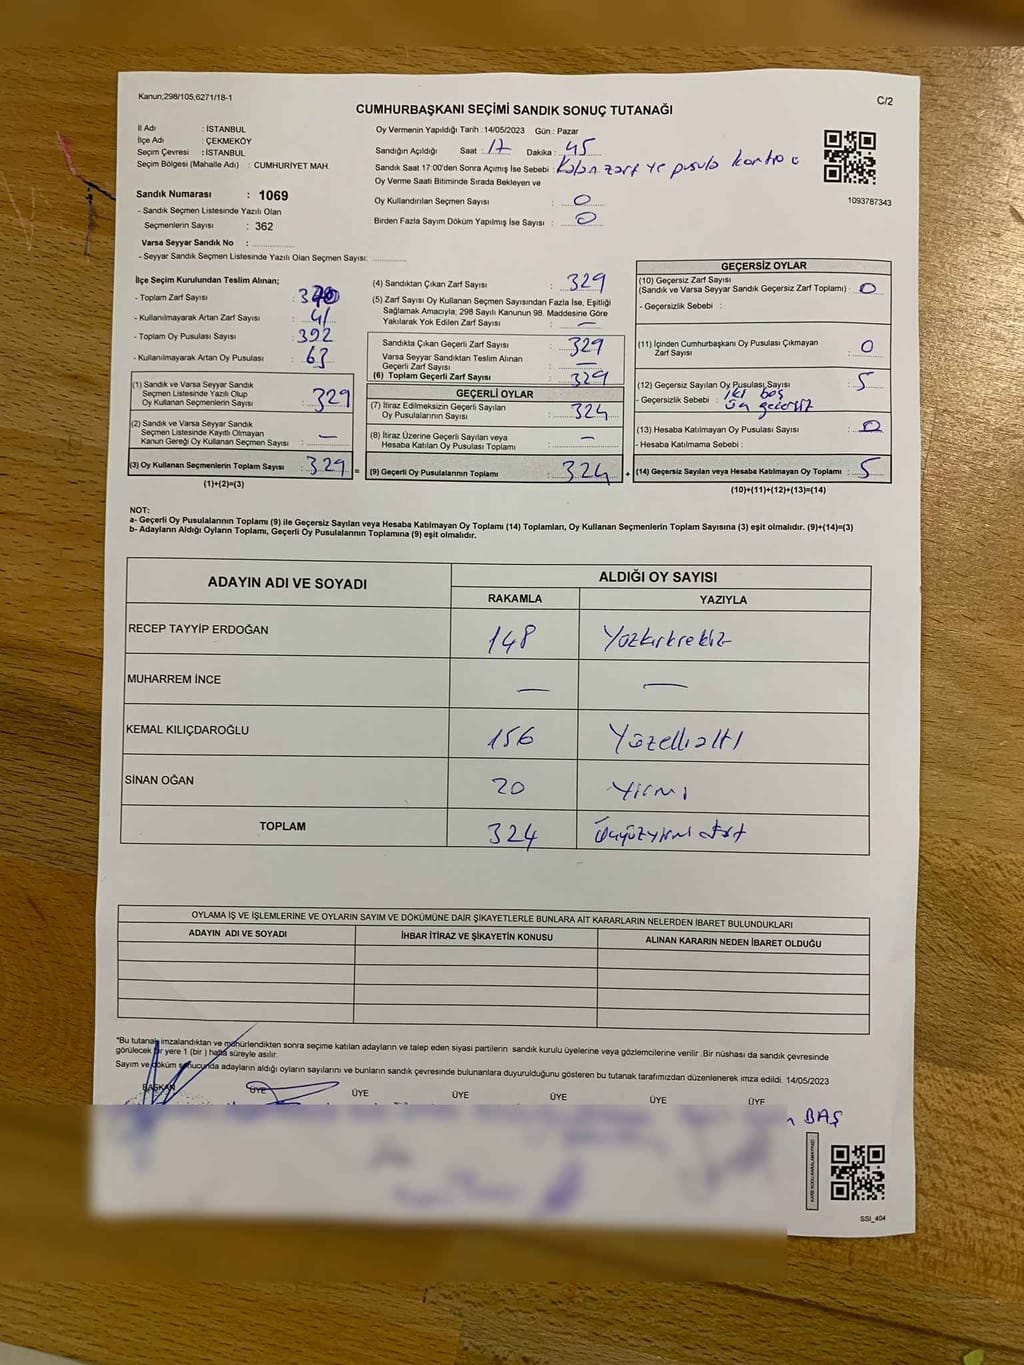 Kanun;298/105,6271/18-1
C/2
CUMHURBAŞKANI SEÇİMİ SANDIK SONUÇ TUTANAĞI
İl Adı : İSTANBUL
İlçe Adı : ÇEKMEKÖY
Seçim Çevresi : İSTANBUL
Seçim Bölgesi (Mahalle Adı) : CUMHURİYET MAH.
Sandık Numarası : 1069
- Sandık Seçmen Listesinde Yazılı Olan
Seçmenlerin Sayısı : 362
Varsa Seyyar Sandık No :
- Seyyar Sandık Seçmen Listesinde Yazılı Olan Seçmen Sayısı:
Oy Vermenin Yapıldığı Tarih : 14/05/2023 Gün : Pazar
Sandığın Açıldığı Saat : 17 Dakika : 45
Sandık Saat 17:00'den Sonra Açımış İse Sebebi : Kalan zarf ve pusula
Oy Verme Saati Bitiminde Sırada Bekleyen ve
Oy Kullandırılan Seçmen Sayısı : 0
Birden Fazla Sayım Döküm Yapılmış İse Sayısı : 0
1093787343
İlçe Seçim Kurulundan Teslim Alınan;
- Toplam Zarf Sayısı :
- Kullanılmayarak Artan Zarf Sayısı : 41
- Toplam Oy Pusulası Sayısı : 392
- Kullanılmayarak Artan Oy Pusulası : 63
(1) Sandık ve Varsa Seyyar Sandık
Seçmen Listesinde Yazılı Olup
Oy Kullanan Seçmenlerin Sayısı : 329
(2) Sandık ve Varsa Seyyar Sandık
Seçmen Listesinde Kayıtlı Olmayan
Kanun Gereği Oy Kullanan Seçmen Sayısı : —
(3) Oy Kullanan Seçmenlerin Toplam Sayısı : 329 =
(1)+(2)=(3)
(4) Sandıktan Çıkan Zarf Sayısı : 329
(5) Zarf Sayısı Oy Kullanan Seçmen Sayısından Fazla İse, Eşitliği
Sağlamak Amacıyla; 298 Sayılı Kanunun 98. Maddesine Göre
Yakılarak Yok Edilen Zarf Sayısı : —
Sandıkta Çıkan Geçerli Zarf Sayısı : 329
Varsa Seyyar Sandıktan Teslim Alınan
Geçerli Zarf Sayısı : —
(6) Toplam Geçerli Zarf Sayısı : 329
GEÇERLİ OYLAR
(7) İtiraz Edilmeksizin Geçerli Sayılan
Oy Pusulalarının Sayısı : 324
(8) İtiraz Üzerine Geçerli Sayılan veya
Hesaba Katılan Oy Pusulası Toplamı : —
(9) Geçerli Oy Pusulalarının Toplamı : 324 +
GEÇERSİZ OYLAR
(10) Geçersiz Zarf Sayısı
(Sandık ve Varsa Seyyar Sandık Geçersiz Zarf Toplamı) : 0
- Geçersizlik Sebebi :
(11) İçinden Cumhurbaşkanı Oy Pusulası Çıkmayan
Zarf Sayısı : 0
(12) Geçersiz Sayılan Oy Pusulası Sayısı : 5
- Geçersizlik Sebebi : iki boş
üç geçersiz
(13) Hesaba Katılmayan Oy Pusulası Sayısı : 0
- Hesaba Katılmama Sebebi :
(14) Geçersiz Sayılan veya Hesaba Katılmayan Oy Toplamı : 5
(10)+(11)+(12)+(13)=(14)
NOT:
a- Geçerli Oy Pusulalarının Toplamı (9) ile Geçersiz Sayılan veya Hesaba Katılmayan Oy Toplamı (14) Toplamları, Oy Kullanan Seçmenlerin Toplam Sayısına (3) eşit olmalıdır. (9)+(14)=(3)
b- Adayların Aldığı Oyların Toplamı, Geçerli Oy Pusulalarının Toplamına (9) eşit olmalıdır.
ADAYIN ADI VE SOYADI
ALDIĞI OY SAYISI
RAKAMLA YAZIYLA
RECEP TAYYİP ERDOĞAN 148 Yüzkırksekiz
MUHARREM İNCE — —
KEMAL KILIÇDAROĞLU 156 Yüzellialtı
SİNAN OĞAN 20 Yirmi
TOPLAM 324 Üçyüzyirmi dört
OYLAMA İŞ VE İŞLEMLERİNE VE OYLARIN SAYIM VE DÖKÜMÜNE DAİR ŞİKAYETLERLE BUNLARA AİT KARARLARIN NELERDEN İBARET BULUNDUKLARI
ADAYIN ADI VE SOYADI İHBAR İTİRAZ VE ŞİKAYETİN KONUSU ALINAN KARARIN NEDEN İBARET OLDUĞU
*Bu tutanak imzalandıktan ve mühürlendikten sonra seçime katılan adayların ve talep eden siyasi partilerin sandık kurulu üyelerine veya gözlemcilerine verilir .Bir nüshası da sandık çevresinde
görülecek bir yere 1 (bir ) hafta süreyle asılır.
Sayım ve döküm sonucunda adayların aldığı oyların sayılarını ve bunların sandık çevresinde bulunanlara duyurulduğunu gösteren bu tutanak tarafımızdan düzenlenerek imza edildi. 14/05/2023
BAŞKAN ÜYE ÜYE ÜYE ÜYE ÜYE ÜYE
BAŞ
SSI_404